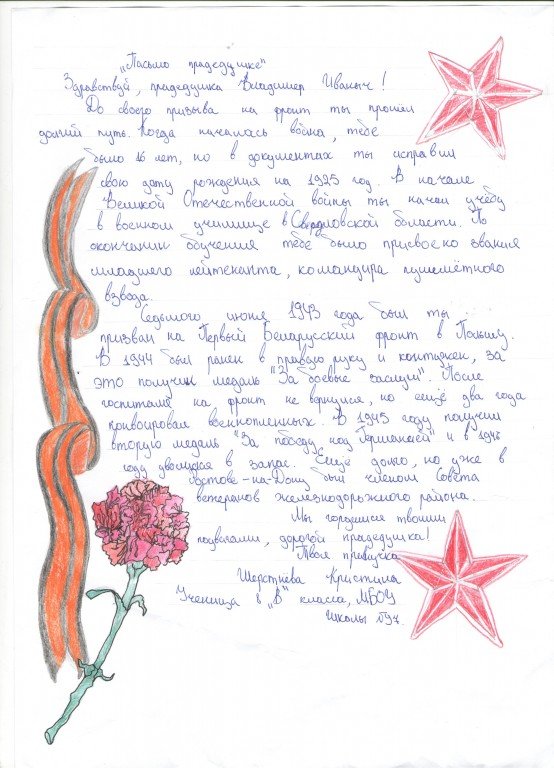 „Письмо прадедушке"
Здравствуй, прадедушка Владимир Иваныч!
До своего призыва на фронт ты прошел
долгий путь. Когда началась война, тебе
было 16 лет, но в документах ты исправил
свою дату рождения на 1925 год. В начале
Великой Отечественной войны ты начал учёбу
в военном училище в Свердловской области. По
окончании обучения тебе было присвоено звания
младшего лейтенанта, командира пулемётного
взвода.
Седьмого июня 1943 года был ты
призван на Первый Беларусский фронт в Польшу.
В 1944 был ранен в правую руку и контужен, за
это получил медаль "За боевые заслуги". После
госпиталя на фронт не вернулся, но ещё два года
конвоировал военнопленных. В 1945 году получил
вторую медаль "За победу над Германией" и в 1946
году уволился в запас. Ещё долго, но уже в
Ростове-на-Дону был членом Совета
ветеранов железнодорожного района.
Мы гордимся твоими
подвигами, дорогой прадедушка!
Твоя правнучка
Шерстнева Кристина
Ученица 8 „В" класса, МБОУ
Школы №97.